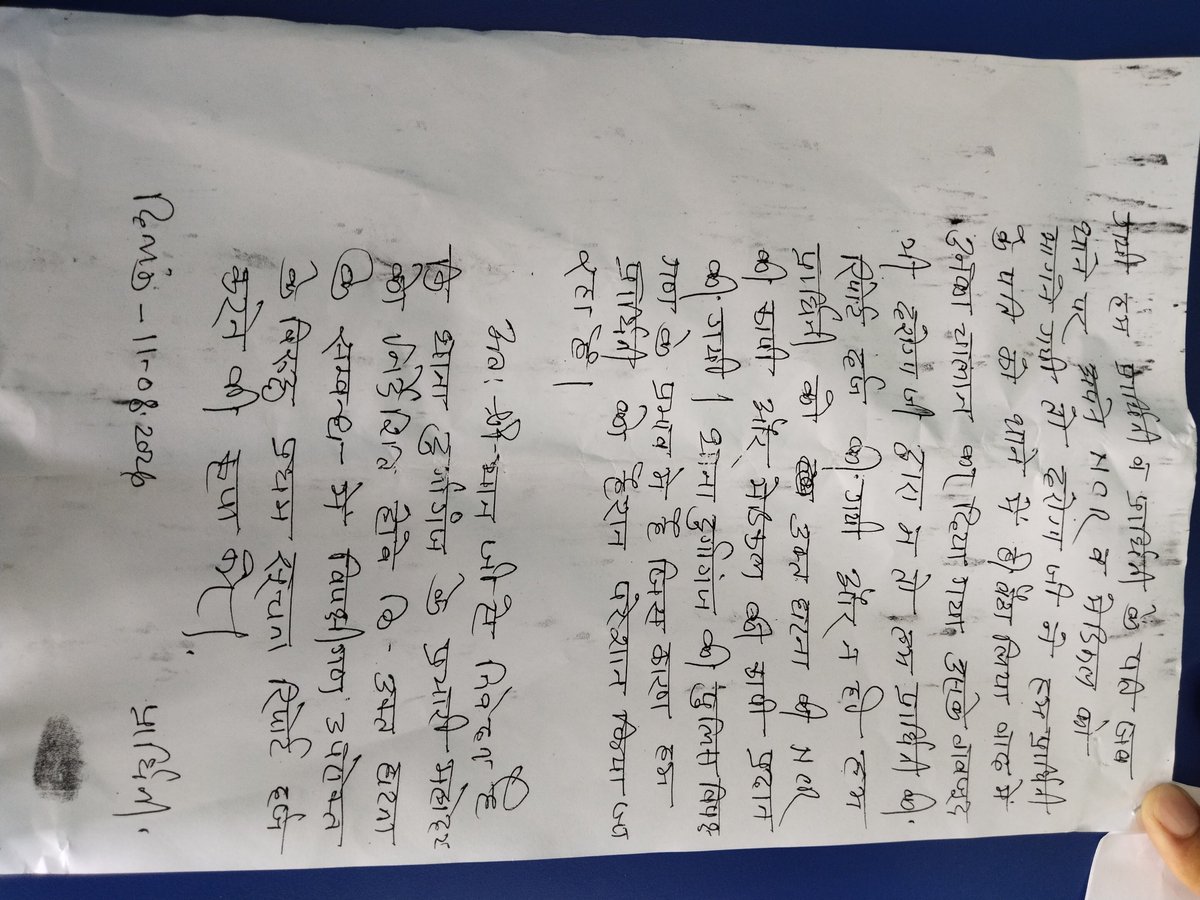 गयी हम प्रार्थिनी व प्रार्थिनी के पति जब
थाने पर अपने NCR व मेडिकल को
मांगने गयी तो दरोगा जी ने हम प्रार्थिनी
के पति को थाने में ही बैठा लिया बाद में
उनका चालान कर दिया गया उसके बावजूद
भी दरोगा जी द्वारा न तो हम प्रार्थिनी की
रिपोर्ट दर्ज की गयी और न ही हम
प्रार्थिनी को उक्त घटना की NCR
की कापी और मेडिकल की कापी प्रदान
की गयी। थाना दुर्गागंज की पुलिस विपक्षी
गण के प्रभाव में है जिस कारण हम
प्रार्थिनी को हैरान परेशान किया जा
रहा है।
अतः श्रीमान जी से निवेदन है
कि थाना दुर्गागंज के प्रभारी महोदय
को निर्देशित होवे कि उक्त घटना
के सम्बन्ध में विपक्षीगण उपरोक्त
के विरुद्ध प्रथम सूचना रिपोर्ट दर्ज
करने की कृपा करें।
दिनांक - 11.08.2026
प्रार्थिनी